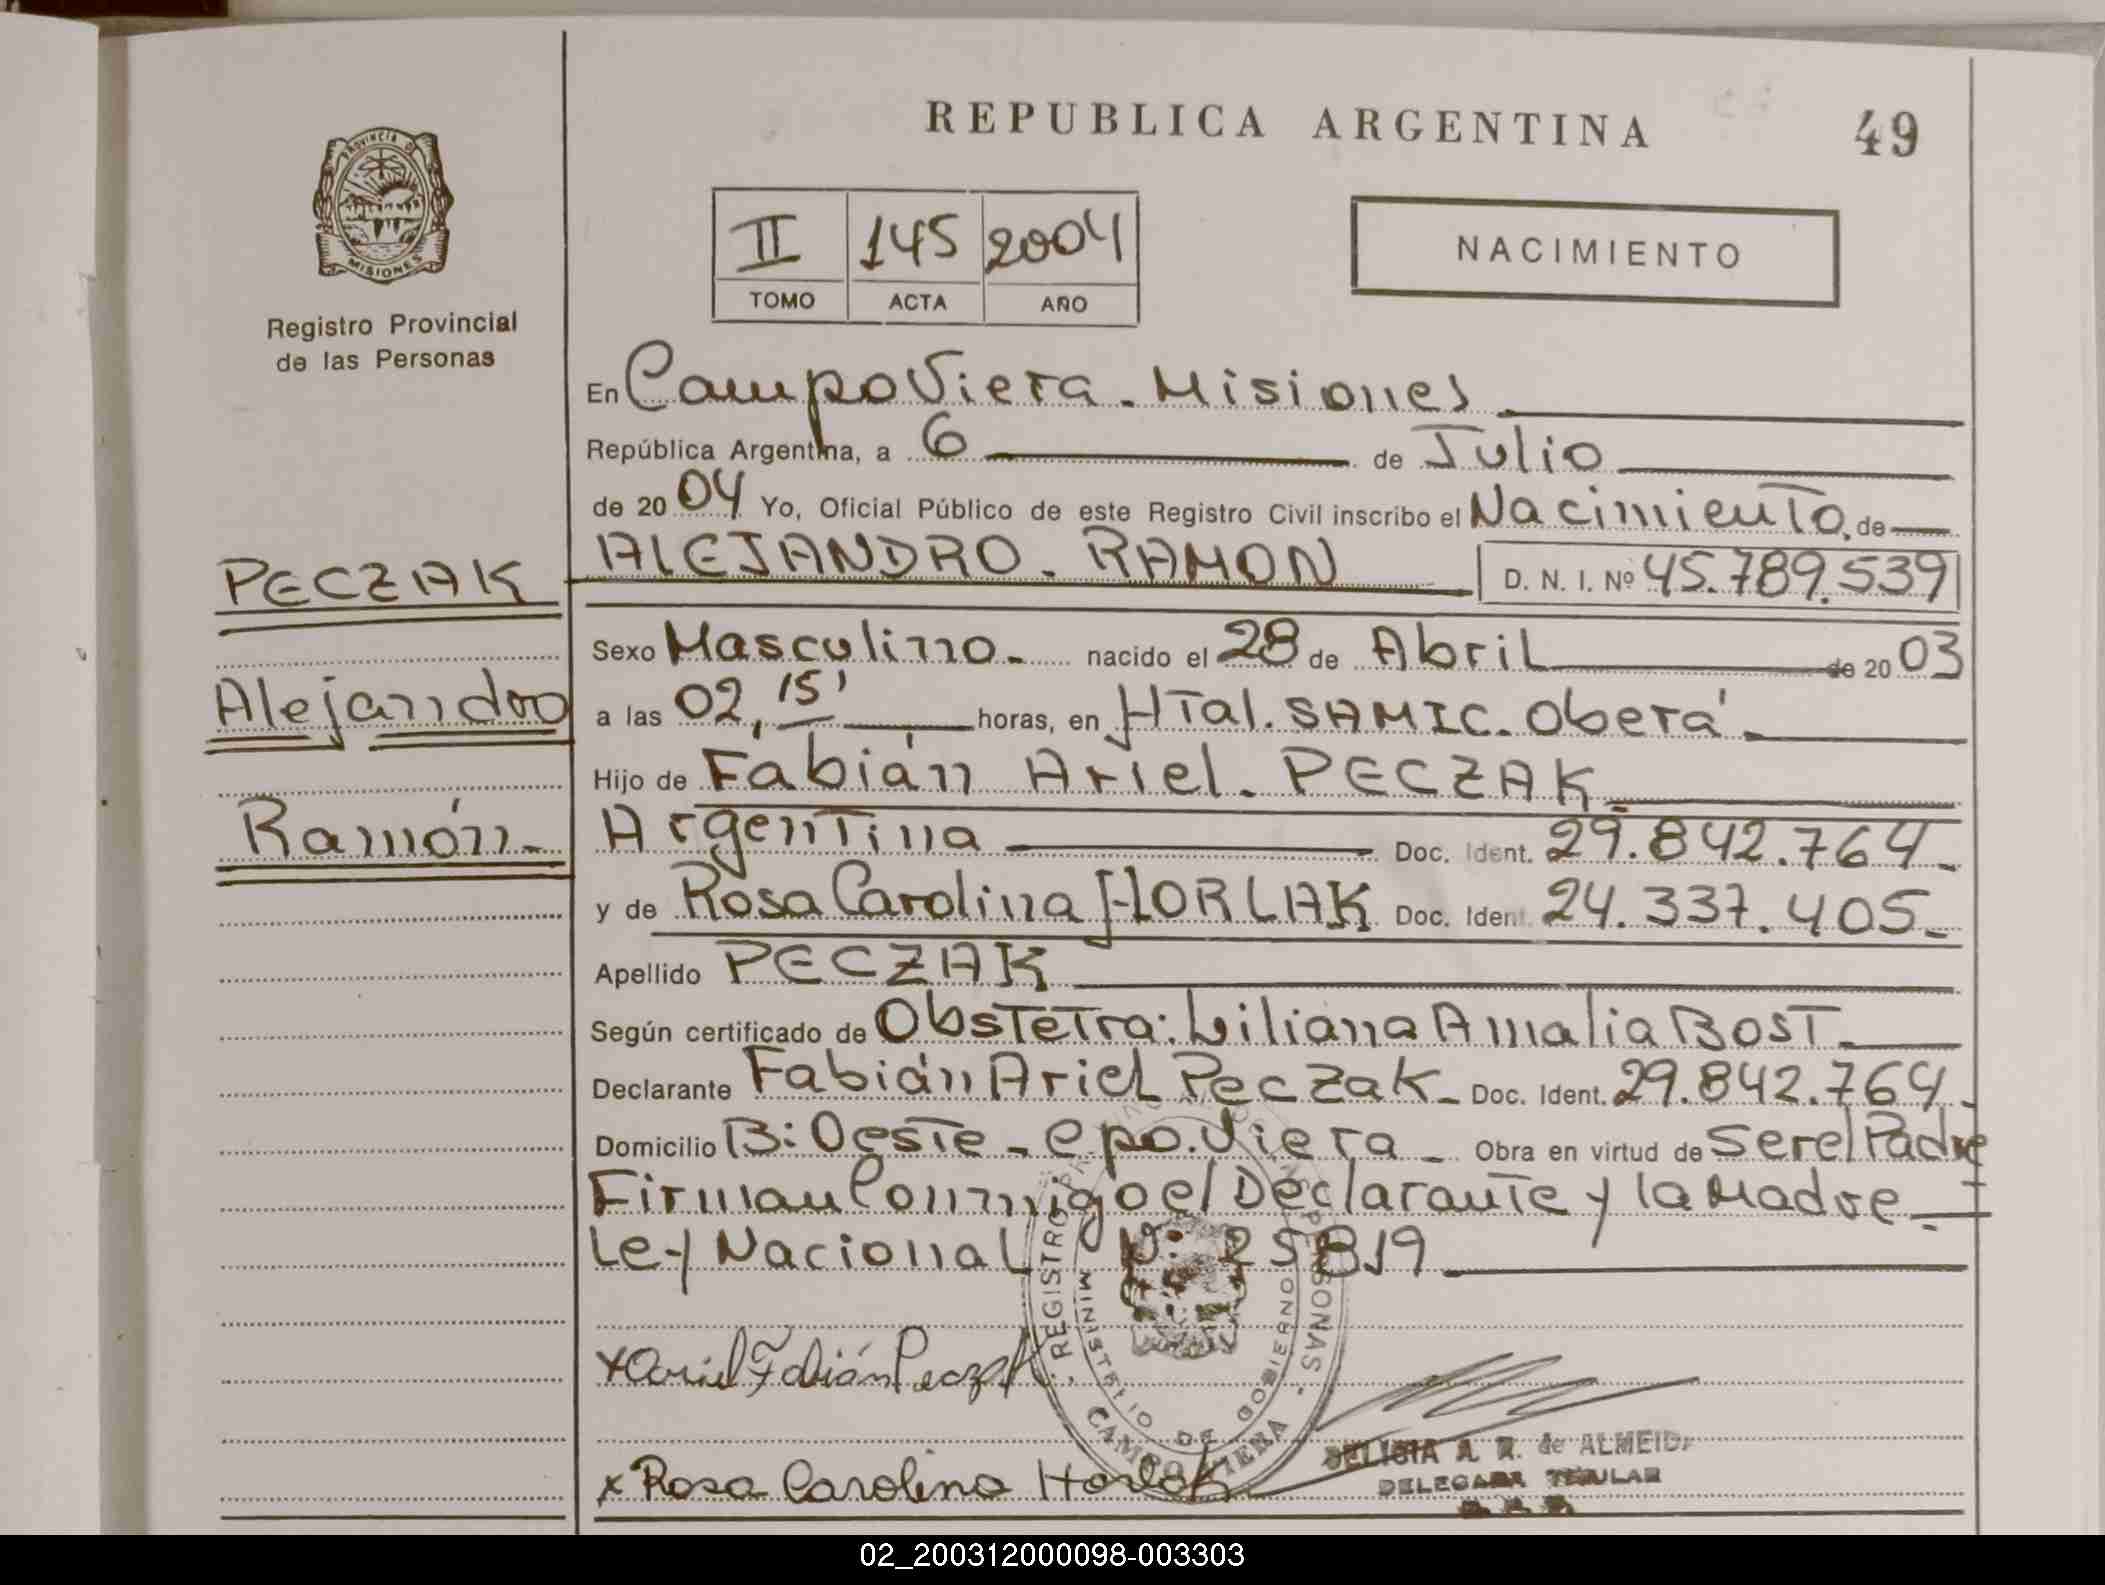 REPUBLICA ARGENTINA
49
PROVINCIA DE
MISIONES
Registro Provincial
de las Personas
II 145 2004
TOMO ACTA AÑO
NACIMIENTO
En Campo Viera - Misiones
República Argentina, a 6 de Julio
de 2004 Yo, Oficial Público de este Registro Civil inscribo el Nacimiento, de
PECZAK
Alejandro
Ramón.
ALEJANDRO - RAMON D. N. I. Nº 45.789.539
Sexo Masculino - nacido el 28 de Abril de 2003
a las 02,15' horas, en HTal. SAMIC. Oberá -
Hijo de Fabián Ariel - PECZAK -
Argentina Doc. Ident. 29.842.764 -
y de Rosa Carolina HORLAK Doc. Ident. 24.337.405 -
Apellido PECZAK
Según certificado de Obstetra: Liliana Amalia BOST -
Declarante Fabián Ariel Peczak - Doc. Ident. 29.842.764 -
Domicilio B: Oeste - Cpo. Viera - Obra en virtud de Ser el Padre
Firman Conmigo el Declarante y la Madre -
Ley Nacional Nº: 25819
x Ariel Fabián Peczak
x Rosa Carolina Horlak
REGISTRO PERSONAS - CAMPO VIERA
MINISTERIO DE GOBIERNO
DELICIA A. R. de ALMEIDA
DELEGADA TITULAR
02_200312000098-003303